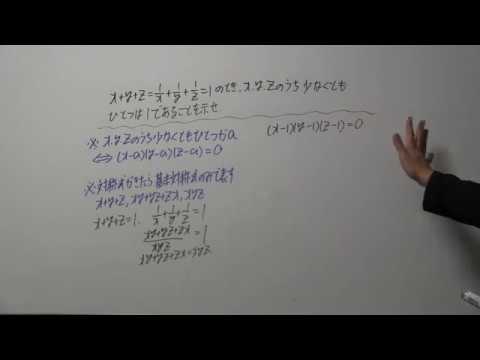 x+y+z=1/x+1/y+1/z=1のとき、x.y.zのうち少なくとも
ひとつは1であることを示せ
※ x.y.zのうち少なくともひとつがa
⇔(x-a)(y-a)(z-a)=0
(x-1)(y-1)(z-1)=0
※対称式がきたら基本対称式のみで表す
x+y+z, xy+yz+zx, xyz
x+y+z=1. 1/x+1/y+1/z=1
xy+yz+zx/xyz=1
xy+yz+zx=xyz